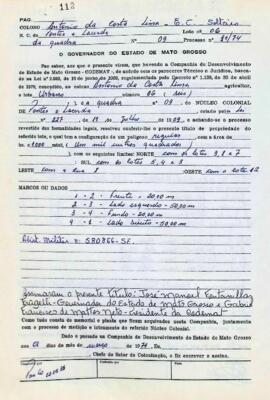 112
PAG
Colono Antonio da Costa Lima - E.C. Solteiro
N. C. de Pontes e Lacerda Lote nº 06
da quadra Nº 09 Processo nº /74
O GOVERNADOR DO ESTADO DE MATO GROSSO
Faz saber, aos que a presente virem, que havendo a Companhia de Desenvolvimento
do Estado de Mato Grosso - CODEMAT, de acôrdo com os pareceres Técnico e Jurídico, baseada
de 1970, concedeu ao colono Antonio da Costa Lima agricultor,
o lote Urbano número 06 (seis)
da quadra nº 09 DO NÚCLEO COLONIAL
de Pontes e Lacerda
nº 227 de 19 de Julho de , e achando-se o processo
revestido das formalidades legais, resolveu conferir-lhe o presente título de propriedade
do referido lote, o qual tem a configuração de um polígono regular com a área de
1.000 (Um mil metros quadrados)
com os seguintes limites: NORTE com os lotes 9, 8 e 7
SUL com os lotes 5, 4 e 3
LESTE com a Rua OESTE com o lote 12
MARCOS OU DADOS
1 - 2 - Frente - 20,00 m
2 - 3 - Lado esquerdo - 50,00 m
3 - 4 - Fundo - 20,00 m
4 - 1 - Lado Direito - 50,00 m
Militar nº 580866-SE.
Assinaram o presente título: José Manuel Fontanillas
Fragelli - Governador do Estado de Mato Grosso e Gabriel
Francisco de Mattos Neto - Presidente da Codemat
Tudo como consta do memorial e planta que ficam arquivados nesta Companhia, juntamente
com o processo de medição e loteamento do referido Núcleo Colonial.
Dado e passado em Companhia de Desenvolvimento do Estado de Mato Grosso
aos 01 dias do mês de março de 1974. Eu
Chefe do Setor de Colonização, o fiz escrever e assino.